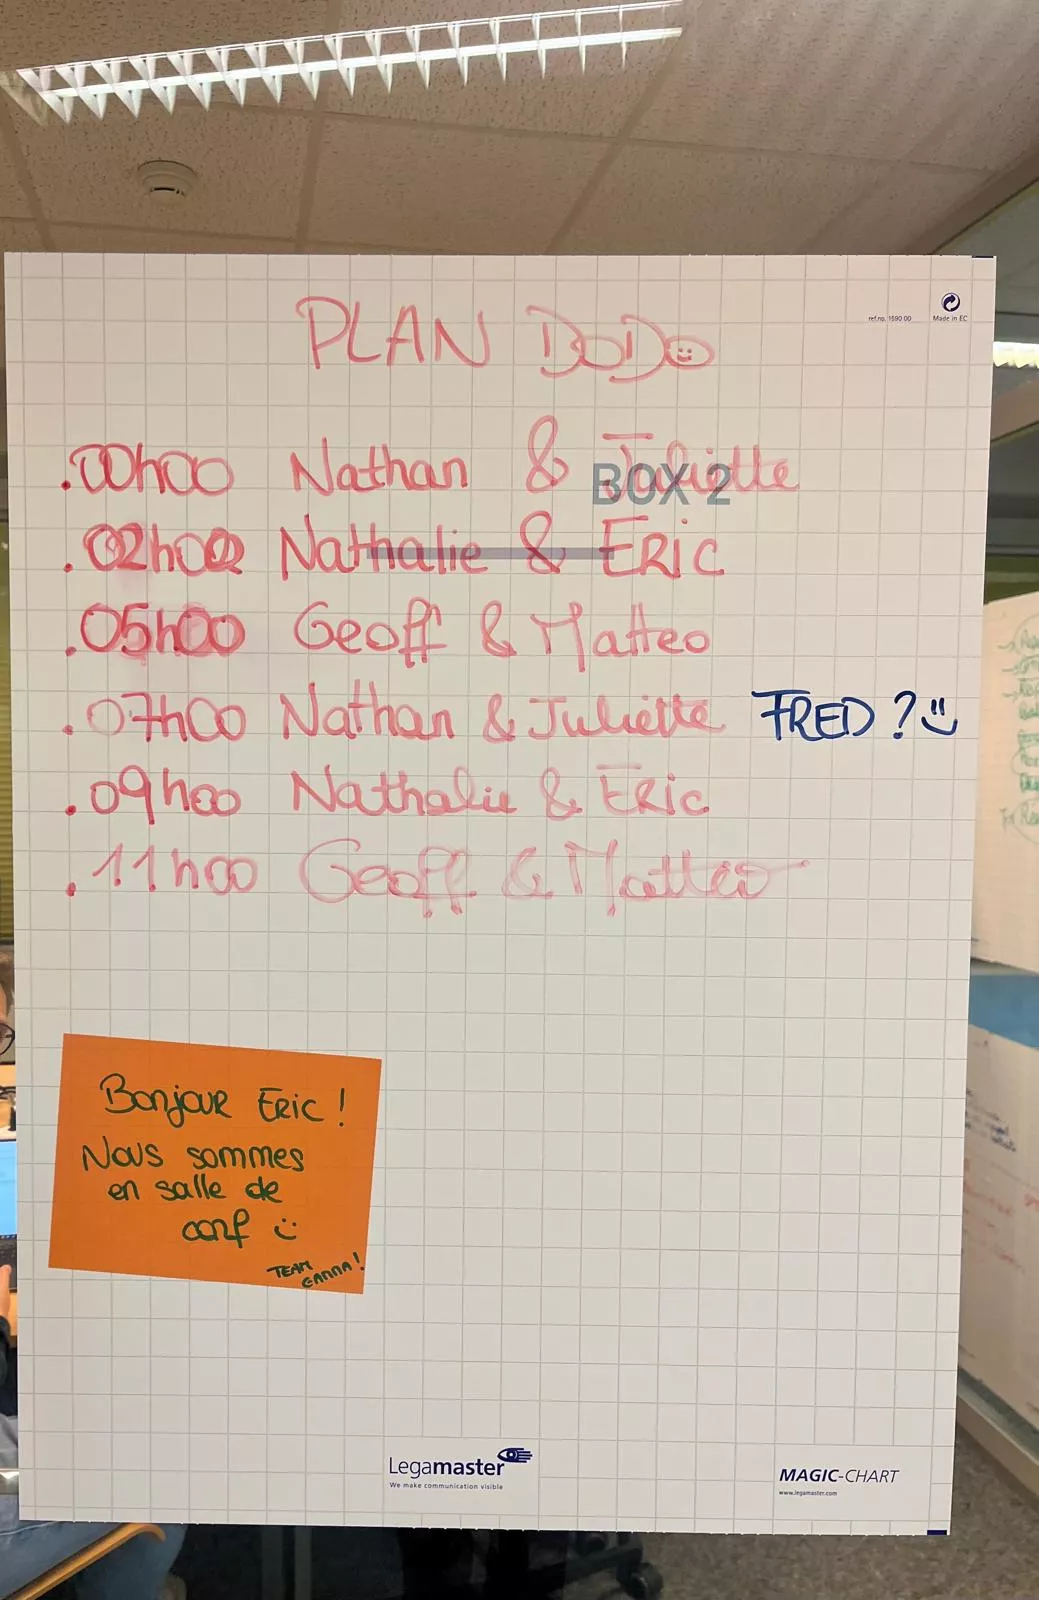 PLAN DODO
ref.no. 1590 00 Made in EC
.00h00 Nathan & Juliette
BOX 2
.02h00 Nathalie & ERIC
.05h00 Geoff & Matteo
.07h00 Nathan & Juliette FRED ?
.09h00 Nathalie & Eric
.11h00 Geoff & Matteo
Bonjour Eric !
Nous sommes
en salle de
conf
TEAM
!
Legamaster
We make communication visible
MAGIC-CHART
www.legamaster.com